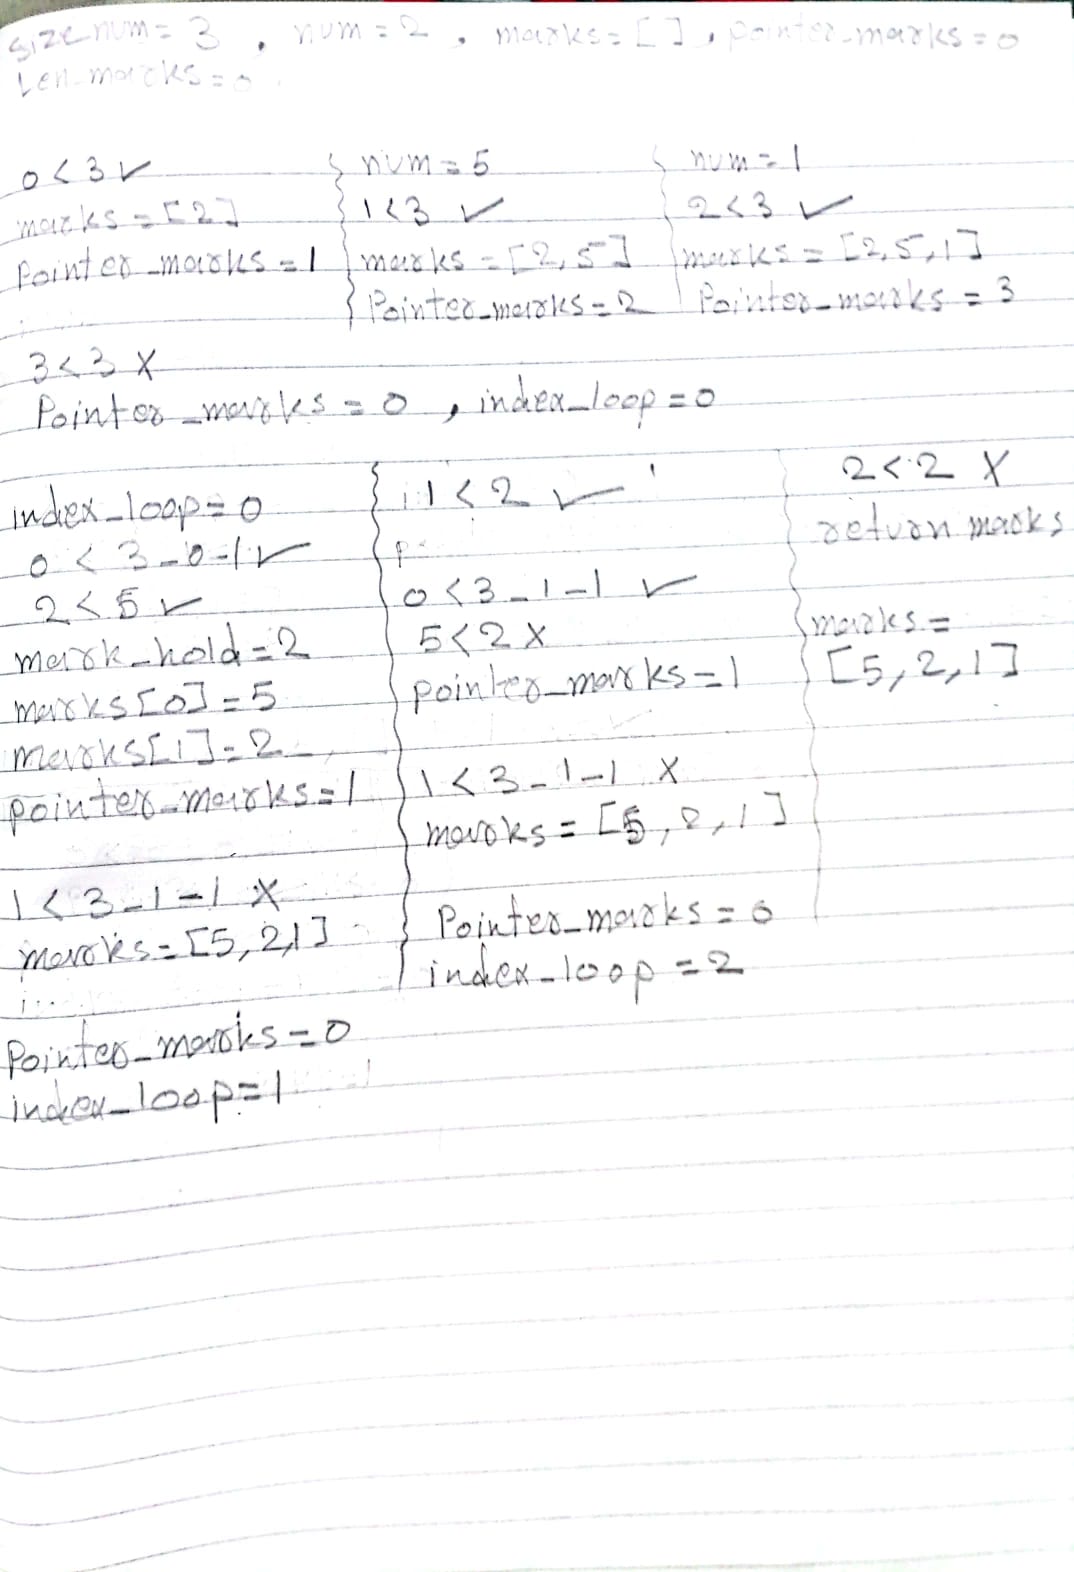 size num = 3 , num = 2 , marks = [ ] , pointer_marks = 0
Len_marks = 0
0 < 3 ✓
marks = [2]
Pointer_marks = 1
num = 5
1 < 3 ✓
marks = [2, 5]
Pointer_marks = 2
num = 1
2 < 3 ✓
marks = [2, 5, 1]
Pointer_marks = 3
3 < 3 X
Pointer_marks = 0 , index_loop = 0
index_loop = 0
0 < 3 - 0 - 1 ✓
2 < 5 ✓
mark_hold = 2
marks[0] = 5
marks[1] = 2
pointer_marks = 1
1 < 3 - 1 - 1 X
marks = [5, 2, 1]
Pointer_marks = 0
index_loop = 1
1 < 2 ✓
0 < 3 - 1 - 1 ✓
5 < 2 X
pointer_marks = 1
1 < 3 - 1 - 1 X
marks = [5, 2, 1]
Pointer_marks = 0
index_loop = 2
2 < 2 X
return marks
marks =
[5, 2, 1]